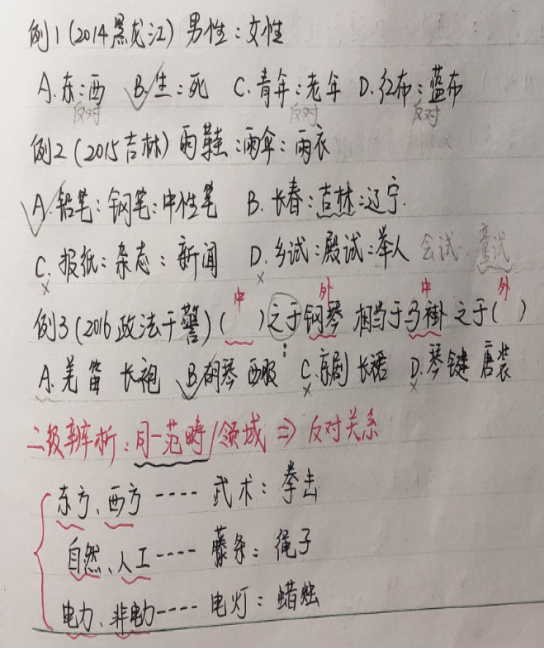 例1(2014黑龙江) 男性：女性
A.东：西 B.生：死 C.青年：老年 D.红布：蓝布
反对 反对 反对
例2(2015吉林) 雨鞋：雨伞：雨衣
A.铅笔：钢笔：中性笔 B.长春：吉林：辽宁.
C.报纸：杂志：新闻 D.乡试：殿试：举人 会试 童试
中 外 中 外
例3(2016政法干警)( )之于钢琴 相当于马褂之于( )
A.羌笛 长袍 B.胡琴 西服 C.京剧 长裙 D.琴键 唐装
二级辨析：同一范畴/领域⇒反对关系
东方、西方----武术：拳击
自然、人工----藤条：绳子
电力、非电力----电灯：蜡烛